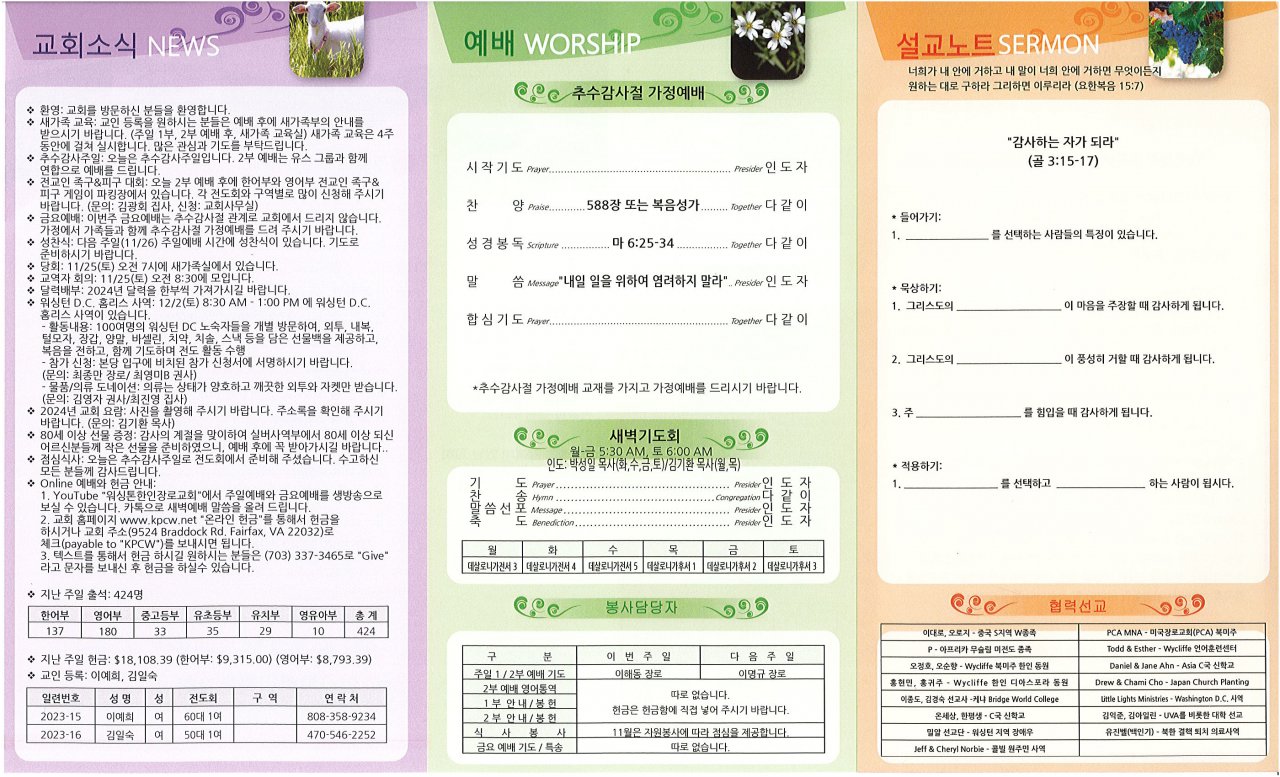 교회소식 NEWS
❖ 환영: 교회를 방문하신 분들을 환영합니다.
❖ 새가족 교육: 교인 등록을 원하시는 분들은 예배 후에 새가족부의 안내를
받으시기 바랍니다. (주일 1부, 2부 예배 후, 새가족 교육실) 새가족 교육은 4주
동안에 걸쳐 실시합니다. 많은 관심과 기도를 부탁드립니다.
❖ 추수감사주일: 오늘은 추수감사주일입니다. 2부 예배는 유스 그룹과 함께
연합으로 예배를 드립니다.
❖ 전교인 족구&피구 대회: 오늘 2부 예배 후에 한어부와 영어부 전교인 족구&
피구 게임이 파킹장에서 있습니다. 각 전도회와 구역별로 많이 신청해 주시기
바랍니다. (문의: 김광회 집사, 신청: 교회사무실)
❖ 금요예배: 이번주 금요예배는 추수감사절 관계로 교회에서 드리지 않습니다.
가정에서 가족들과 함께 추수감사절 가정예배를 드려 주시기 바랍니다.
❖ 성찬식: 다음 주일(11/26) 주일예배 시간에 성찬식이 있습니다. 기도로
준비하시기 바랍니다.
❖ 당회: 11/25(토) 오전 7시에 새가족실에서 있습니다.
❖ 교역자 회의: 11/25(토) 오전 8:30에 모입니다.
❖ 달력배부: 2024년 달력을 한부씩 가져가시길 바랍니다.
❖ 워싱턴 D.C. 홈리스 사역: 12/2(토) 8:30 AM - 1:00 PM 에 워싱턴 D.C.
홈리스 사역이 있습니다.
- 활동내용: 100여명의 워싱턴 DC 노숙자들을 개별 방문하여, 외투, 내복,
털모자, 장갑, 양말, 바셀린, 치약, 치솔, 스낵 등을 담은 선물백을 제공하고,
복음을 전하고, 함께 기도하며 전도 활동 수행
- 참가 신청: 본당 입구에 비치된 참가 신청서에 서명하시기 바랍니다.
(문의: 최종만 장로/ 최영미B 권사)
- 물품/의류 도네이션: 의류는 상태가 양호하고 깨끗한 외투와 자켓만 받습니다.
(문의: 김영자 권사/최진영 집사)
❖ 2024년 교회 요람: 사진을 촬영해 주시기 바랍니다. 주소록을 확인해 주시기
바랍니다. (문의: 김기환 목사)
❖ 80세 이상 선물 증정: 감사의 계절을 맞이하여 실버사역부에서 80세 이상 되신
어르신분들께 작은 선물을 준비하였으니, 예배 후에 꼭 받아가시길 바랍니다..
❖ 점심식사: 오늘은 추수감사주일로 전도회에서 준비해 주셨습니다. 수고하신
모든 분들께 감사드립니다.
❖ Online 예배와 헌금 안내:
1. YouTube "워싱톤한인장로교회"에서 주일예배와 금요예배를 생방송으로
보실 수 있습니다. 카톡으로 새벽예배 말씀을 올려 드립니다.
2. 교회 홈페이지 www.kpcw.net "온라인 헌금"를 통해서 헌금을
하시거나 교회 주소(9524 Braddock Rd, Fairfax, VA 22032)로
체크(payable to "KPCW")를 보내시면 됩니다
3. 텍스트를 통해서 헌금 하시길 원하시는 분들은 (703) 337-3465로 "Give"
라고 문자를 보내신 후 헌금을 하실수 있습니다.
❖ 지난 주일 출석: 424명
한어부 영어부 중고등부 유초등부 유치부 영유아부 총 계
137 180 33 35 29 10 424
❖ 지난 주일 헌금: $18,108.39 (한어부: $9,315.00) (영어부: $8,793.39)
❖ 교인 등록: 이예희, 김일숙
일련번호 성 명 성 전도회 구 역 연 락 처
2023-15 이예희 여 60대 1여 808-358-9234
2023-16 김일숙 여 50대 1여 470-546-2252
예배 WORSHIP
추수감사절 가정예배
시 작 기 도 Prayer Presider 인 도 자
찬 양 Praise 588장 또는 복음성가 Together 다 같 이
성 경 봉 독 Scripture 마 6:25-34 Together 다 같 이
말 씀 Message "내일 일을 위하여 염려하지 말라" Presider 인 도 자
합 심 기 도 Prayer Together 다 같 이
*추수감사절 가정예배 교재를 가지고 가정예배를 드리시기 바랍니다.
새벽기도회
월-금 5:30 AM, 토 6:00 AM
인도: 박성일 목사(화,수,금,토)/김기환 목사(월,목)
기 도 Prayer Presider 인 도 자
찬 송 Hymn Congregation 다 같 이
말 씀 선 포 Message Presider 인 도 자
축 도 Benediction Presider 인 도 자
월 화 수 목 금 토
데살로니가전서 3 데살로니가전서 4 데살로니가전서 5 데살로니가후서 1 데살로니가후서 2 데살로니가후서 3
봉사담당자
구 분 이 번 주 일 다 음 주 일
주일 1 / 2부 예배 기도 이해동 장로 이명규 장로
2부 예배 영어통역
1 부 안 내 / 봉 헌 따로 없습니다.
2 부 안 내 / 봉 헌 헌금은 헌금함에 직접 넣어 주시기 바랍니다.
식 사 봉 사 11월은 자원봉사에 따라 점심을 제공합니다.
금요 예배 기도 / 특송 따로 없습니다.
설교노트 SERMON
너희가 내 안에 거하고 내 말이 너희 안에 거하면 무엇이든지
원하는 대로 구하라 그리하면 이루리라 (요한복음 15:7)
"감사하는 자가 되라"
(골 3:15-17)
* 들어가기:
1. ________________ 를 선택하는 사람들의 특징이 있습니다.
* 묵상하기:
1. 그리스도의 ____________________ 이 마음을 주장할 때 감사하게 됩니다.
2. 그리스도의 ____________________ 이 풍성히 거할 때 감사하게 됩니다.
3. 주 ____________________ 를 힘입을 때 감사하게 됩니다.
* 적용하기:
1. __________________ 를 선택하고 _________________ 하는 사람이 됩시다.
협력선교
이대로, 오로지 - 중국 S지역 W종족 PCA MNA - 미국장로교회(PCA) 북미주
P - 아프리카 무슬림 미전도 종족 Todd & Esther - Wycliffe 언어훈련센터
오정호, 오순향 - Wycliffe 북미주 한인 동원 Daniel & Jane Ahn - Asia C국 신학교
홍현민, 홍귀주 - Wycliffe 한인 디아스포라 동원 Drew & Chami Cho - Japan Church Planting
이종도, 김경숙 선교사 -케냐 Bridge World College Little Lights Ministries - Washington D.C. 사역
온세상, 한평생 - C국 신학교 김익준, 김아일린 - UVA를 비롯한 대학 선교
밀알 선교단 - 워싱턴 지역 장애우 유진벨(백인기) - 북한 결핵 퇴치 의료사역
Jeff & Cheryl Norbie - 콜빌 원주민 사역